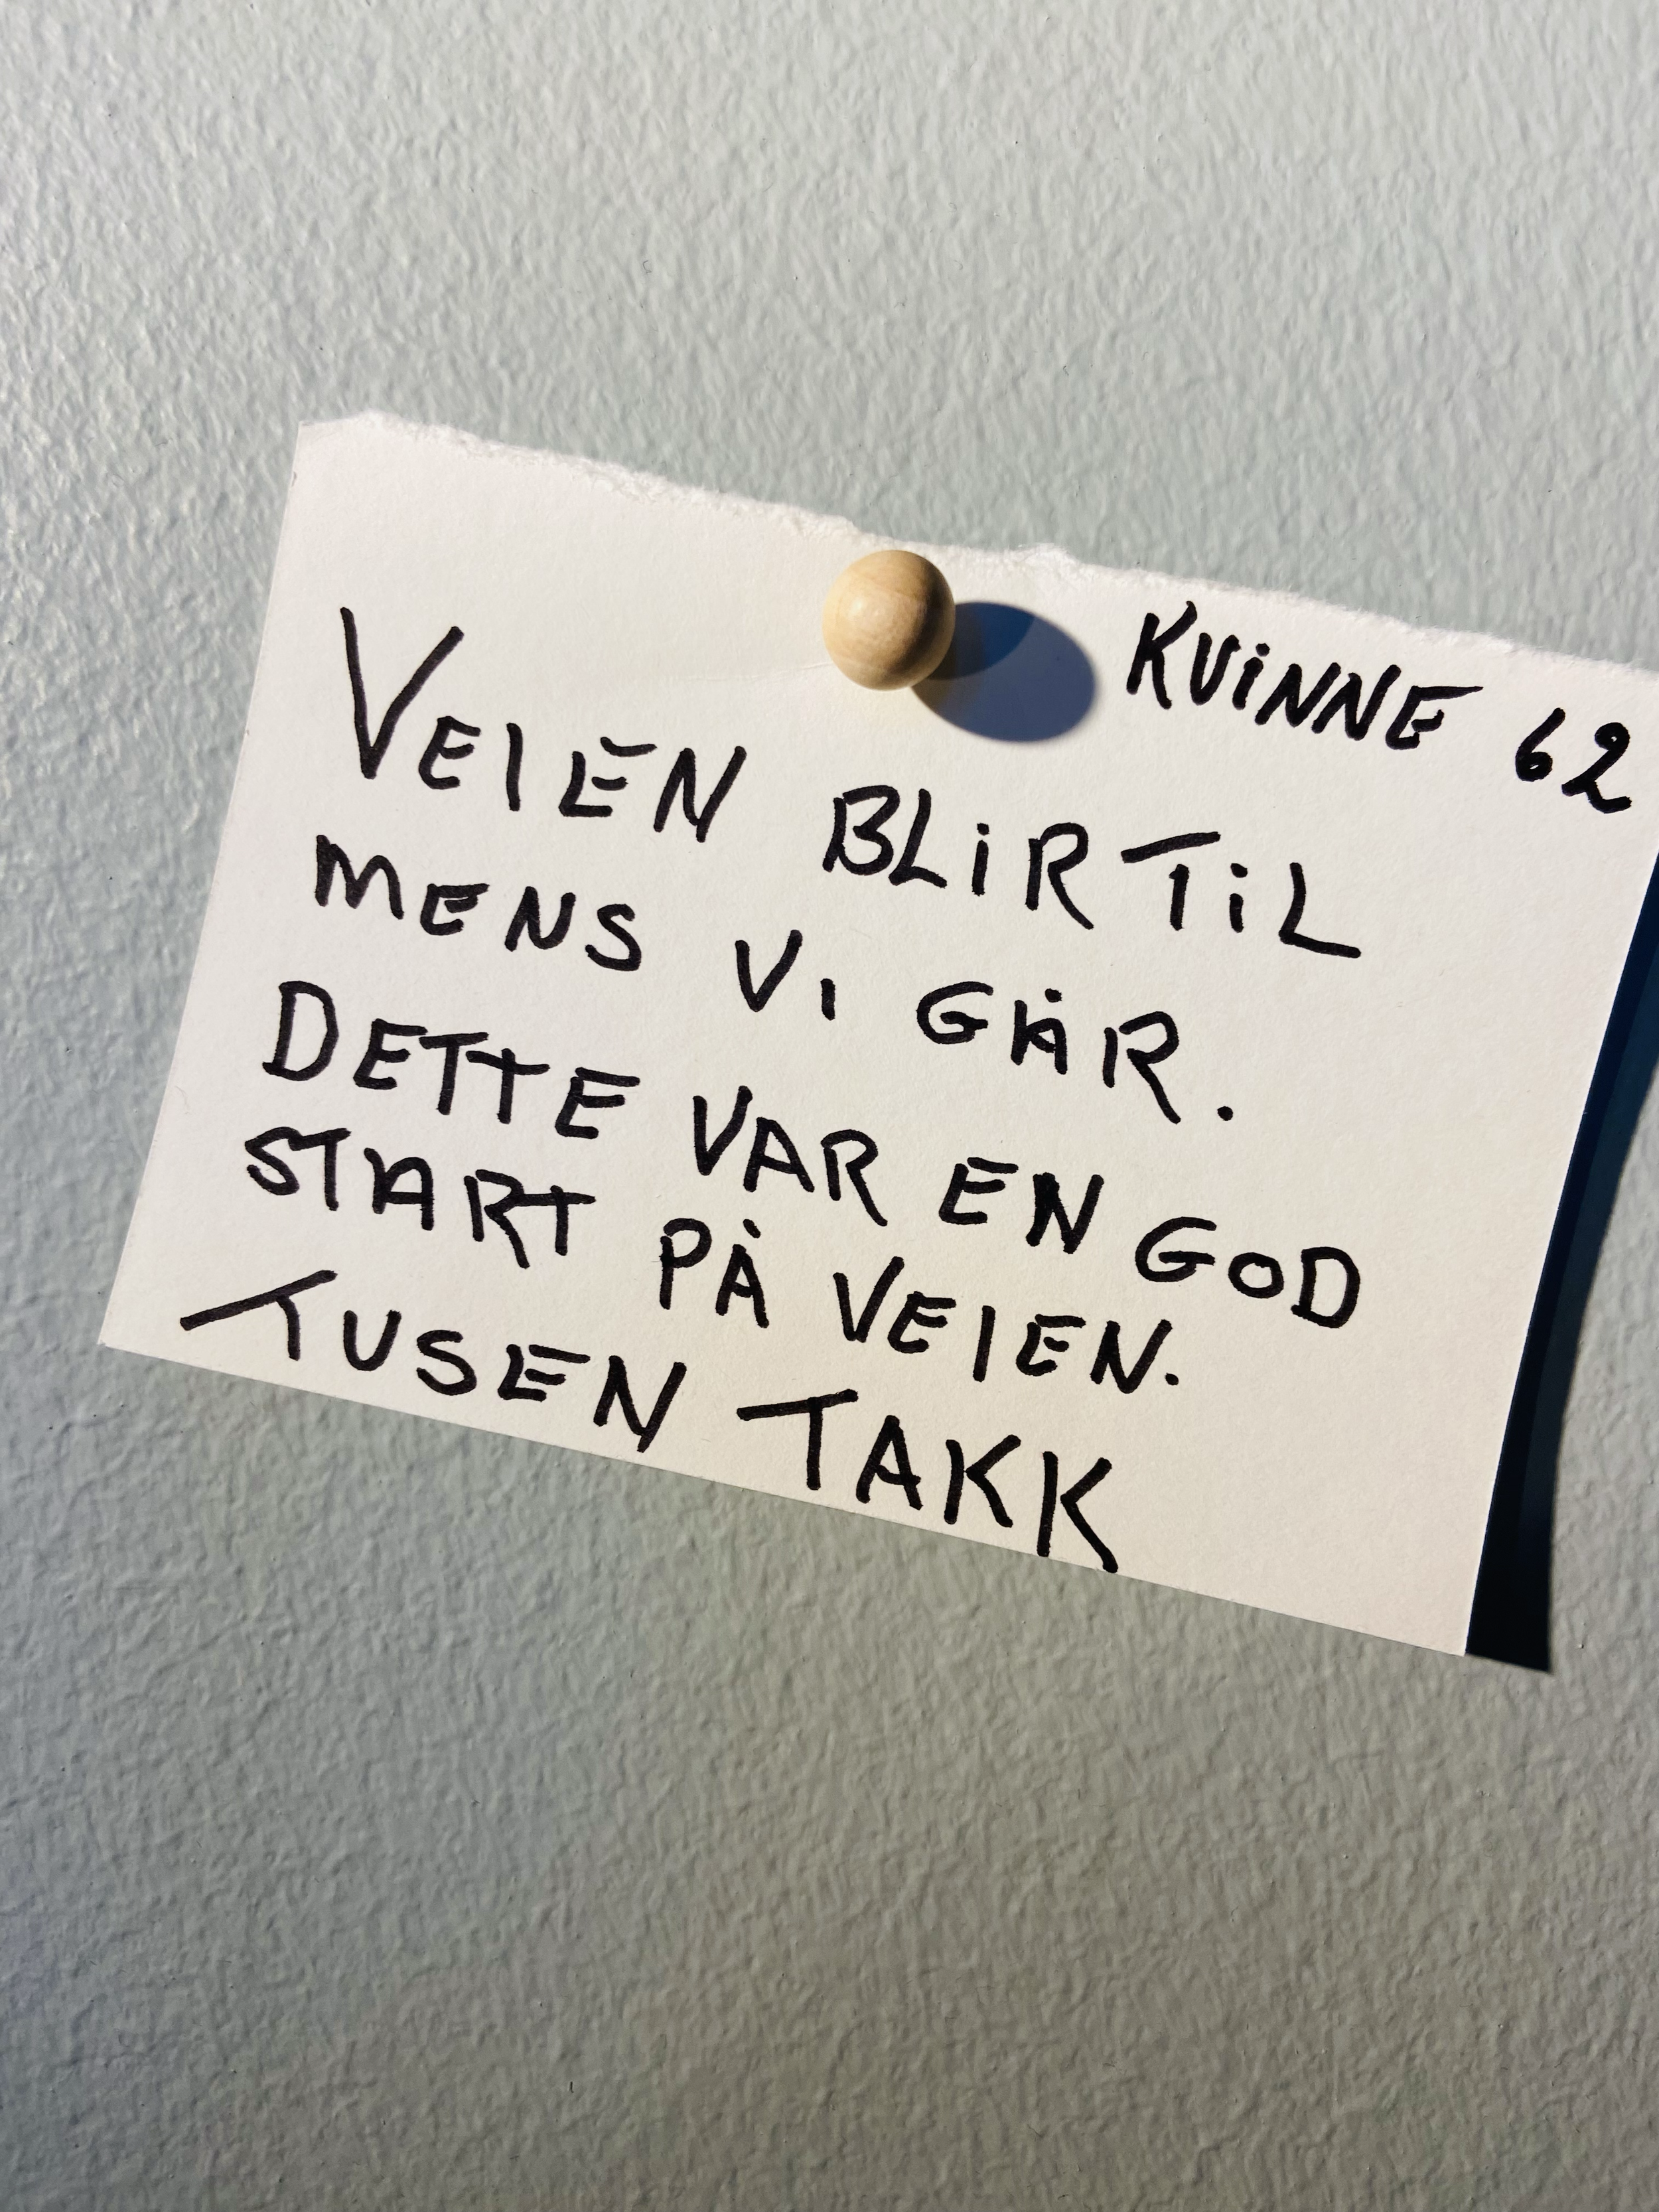 KVINNE 62
VEIEN BLIR TIL
MENS VI GÅR.
DETTE VAR EN GOD
START PÅ VEIEN.
TUSEN TAKK